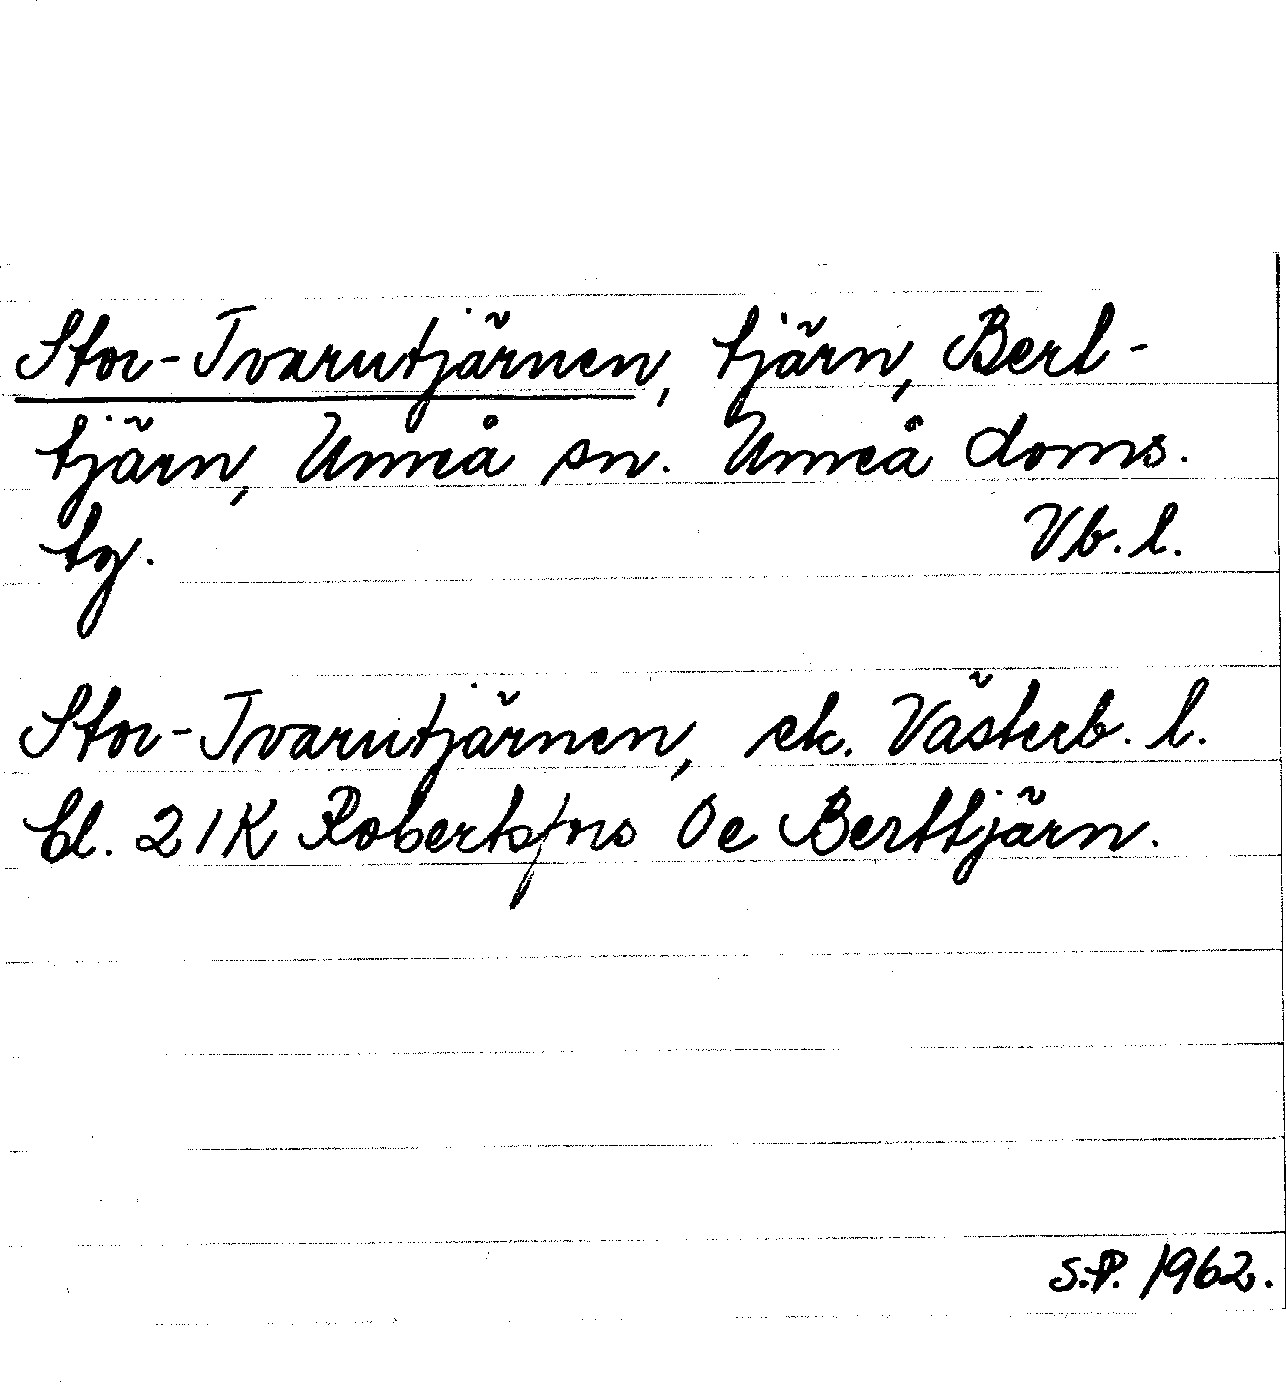 Stor-Tvarutjärnen, tjärn, Bert-
tjärn, Umeå sn. Umeå doms.
tg. Vb. l.
Stor-Tvarutjärnen, ek. Västerb. l.
bl. 21K Robertsfors 0e Berttjärn.
S.P. 1962.